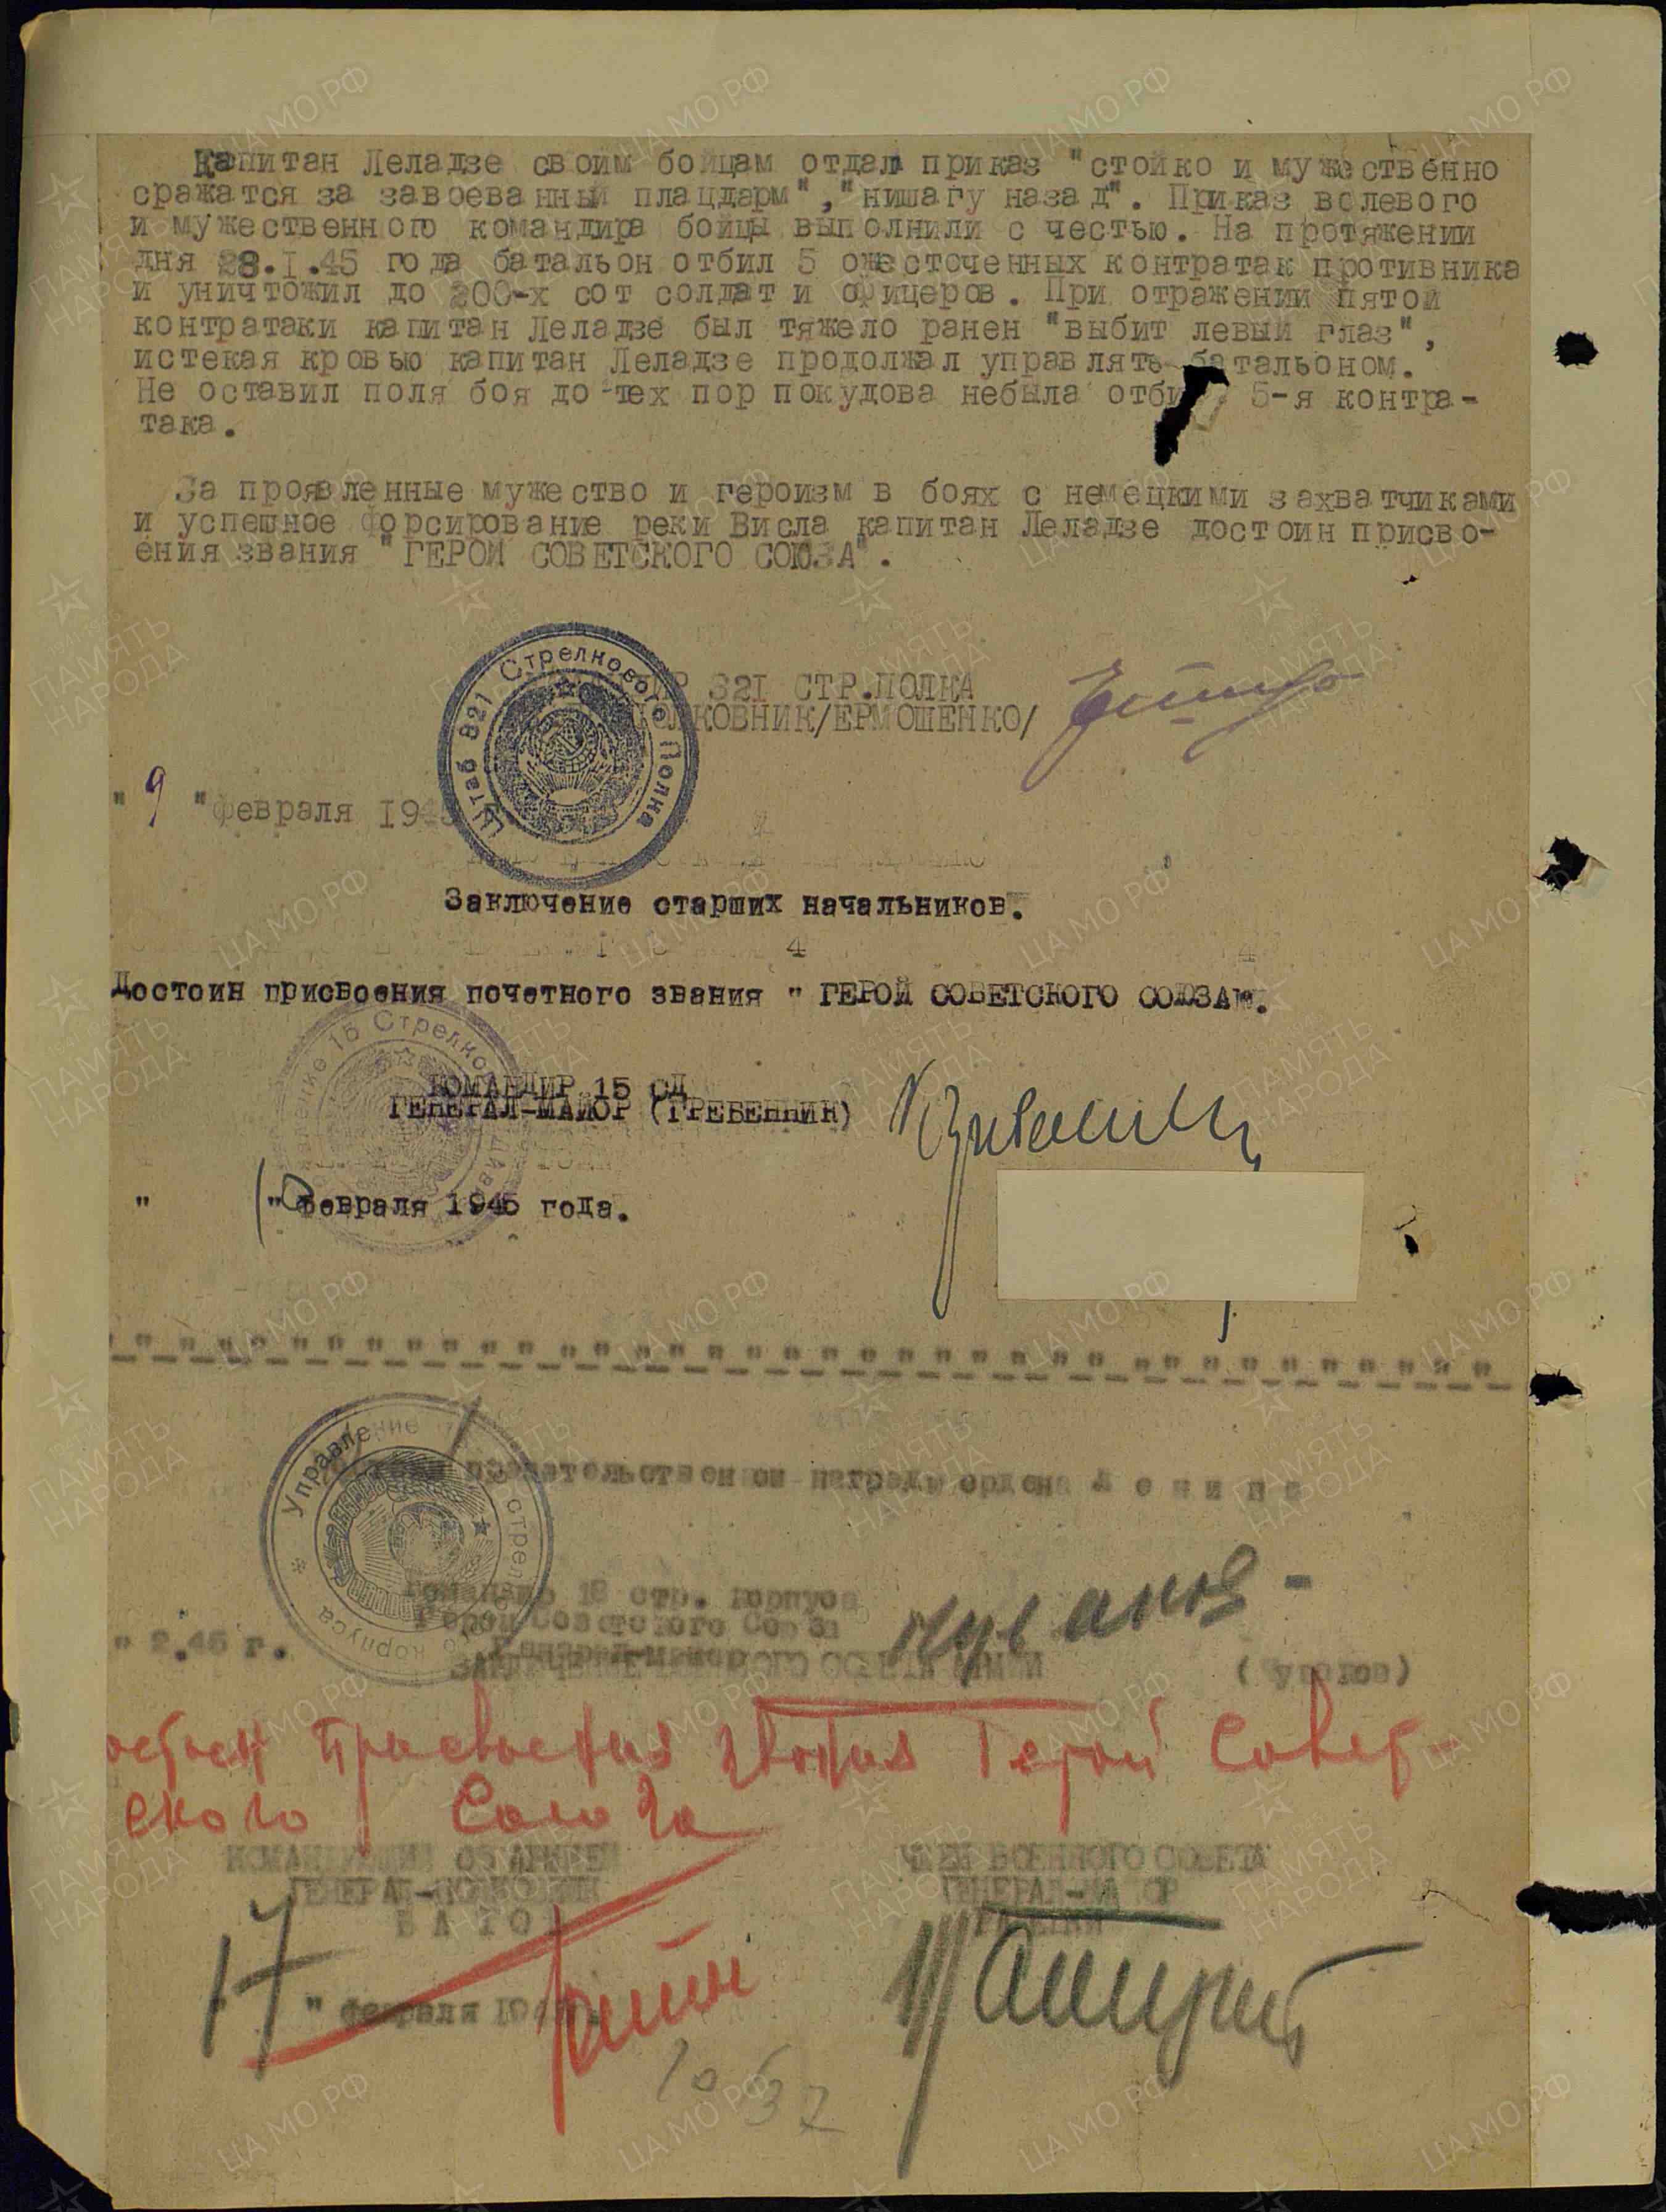 Капитан Леладзе своим бойцам отдал приказ "стойко и мужественно
сражатся за завоеванный плацдарм", "нишагу назад". Приказ волевого
и мужественного командира бойцы выполнили с честью. На протяжении
дня 28.I.45 года батальон отбил 5 ожесточенных контратак противника
и уничтожил до 200-х сот солдат и офицеров. При отражении пятой
контратаки капитан Леладзе был тяжело ранен "выбит левый глаз",
истекая кровью капитан Леладзе продолжал управлять батальоном.
Не оставил поля боя до тех пор покудова небыла отби 5-я контра-
така.
За проявленные мужество и героизм в боях с немецкими захватчиками
и успешное форсирование реки Висла капитан Леладзе достоин присво-
ения звания "ГЕРОЙ СОВЕТСКОГО СОЮЗА".
321 СТР.ПОЛКА
КОВНИК/ЕРМОШЕНКО/
Штаб 321 Стрелкового Полка
"9 "февраля 1945
Заключение старших начальников.
4
Достоин присвоения почетного звания " ГЕРОЙ СОВЕТСКОГО СОЮЗА".
15 Стрелко
КОМАНДИР 15 СД
ГЕНЕРАЛ-МАЙОР (ГРЕБЕННИК)
" 10 " февраля 1945 года.
правительственной награды ордена Л е н и н а
Управление стрел корпуса
Командир 18 стр. корпуса
Герой Советского Союза
Генерал-майор
" 2.45 г.
ЗАКЛЮЧЕНИЕ ВОЕННОГО СОВЕТА АРМИИ
присвоения звания Герой Совет-
ского Союза
КОМАНДУЮЩИЙ 65 АРМИЕЙ
ГЕНЕРАЛ-ПОЛКОВНИК
БАТОВ
ЧЛЕН ВОЕННОГО СОВЕТА
ГЕНЕРАЛ-МАЙОР
17 " февраля 194
ПАМЯТЬ НАРОДА
ЦАМО РФ